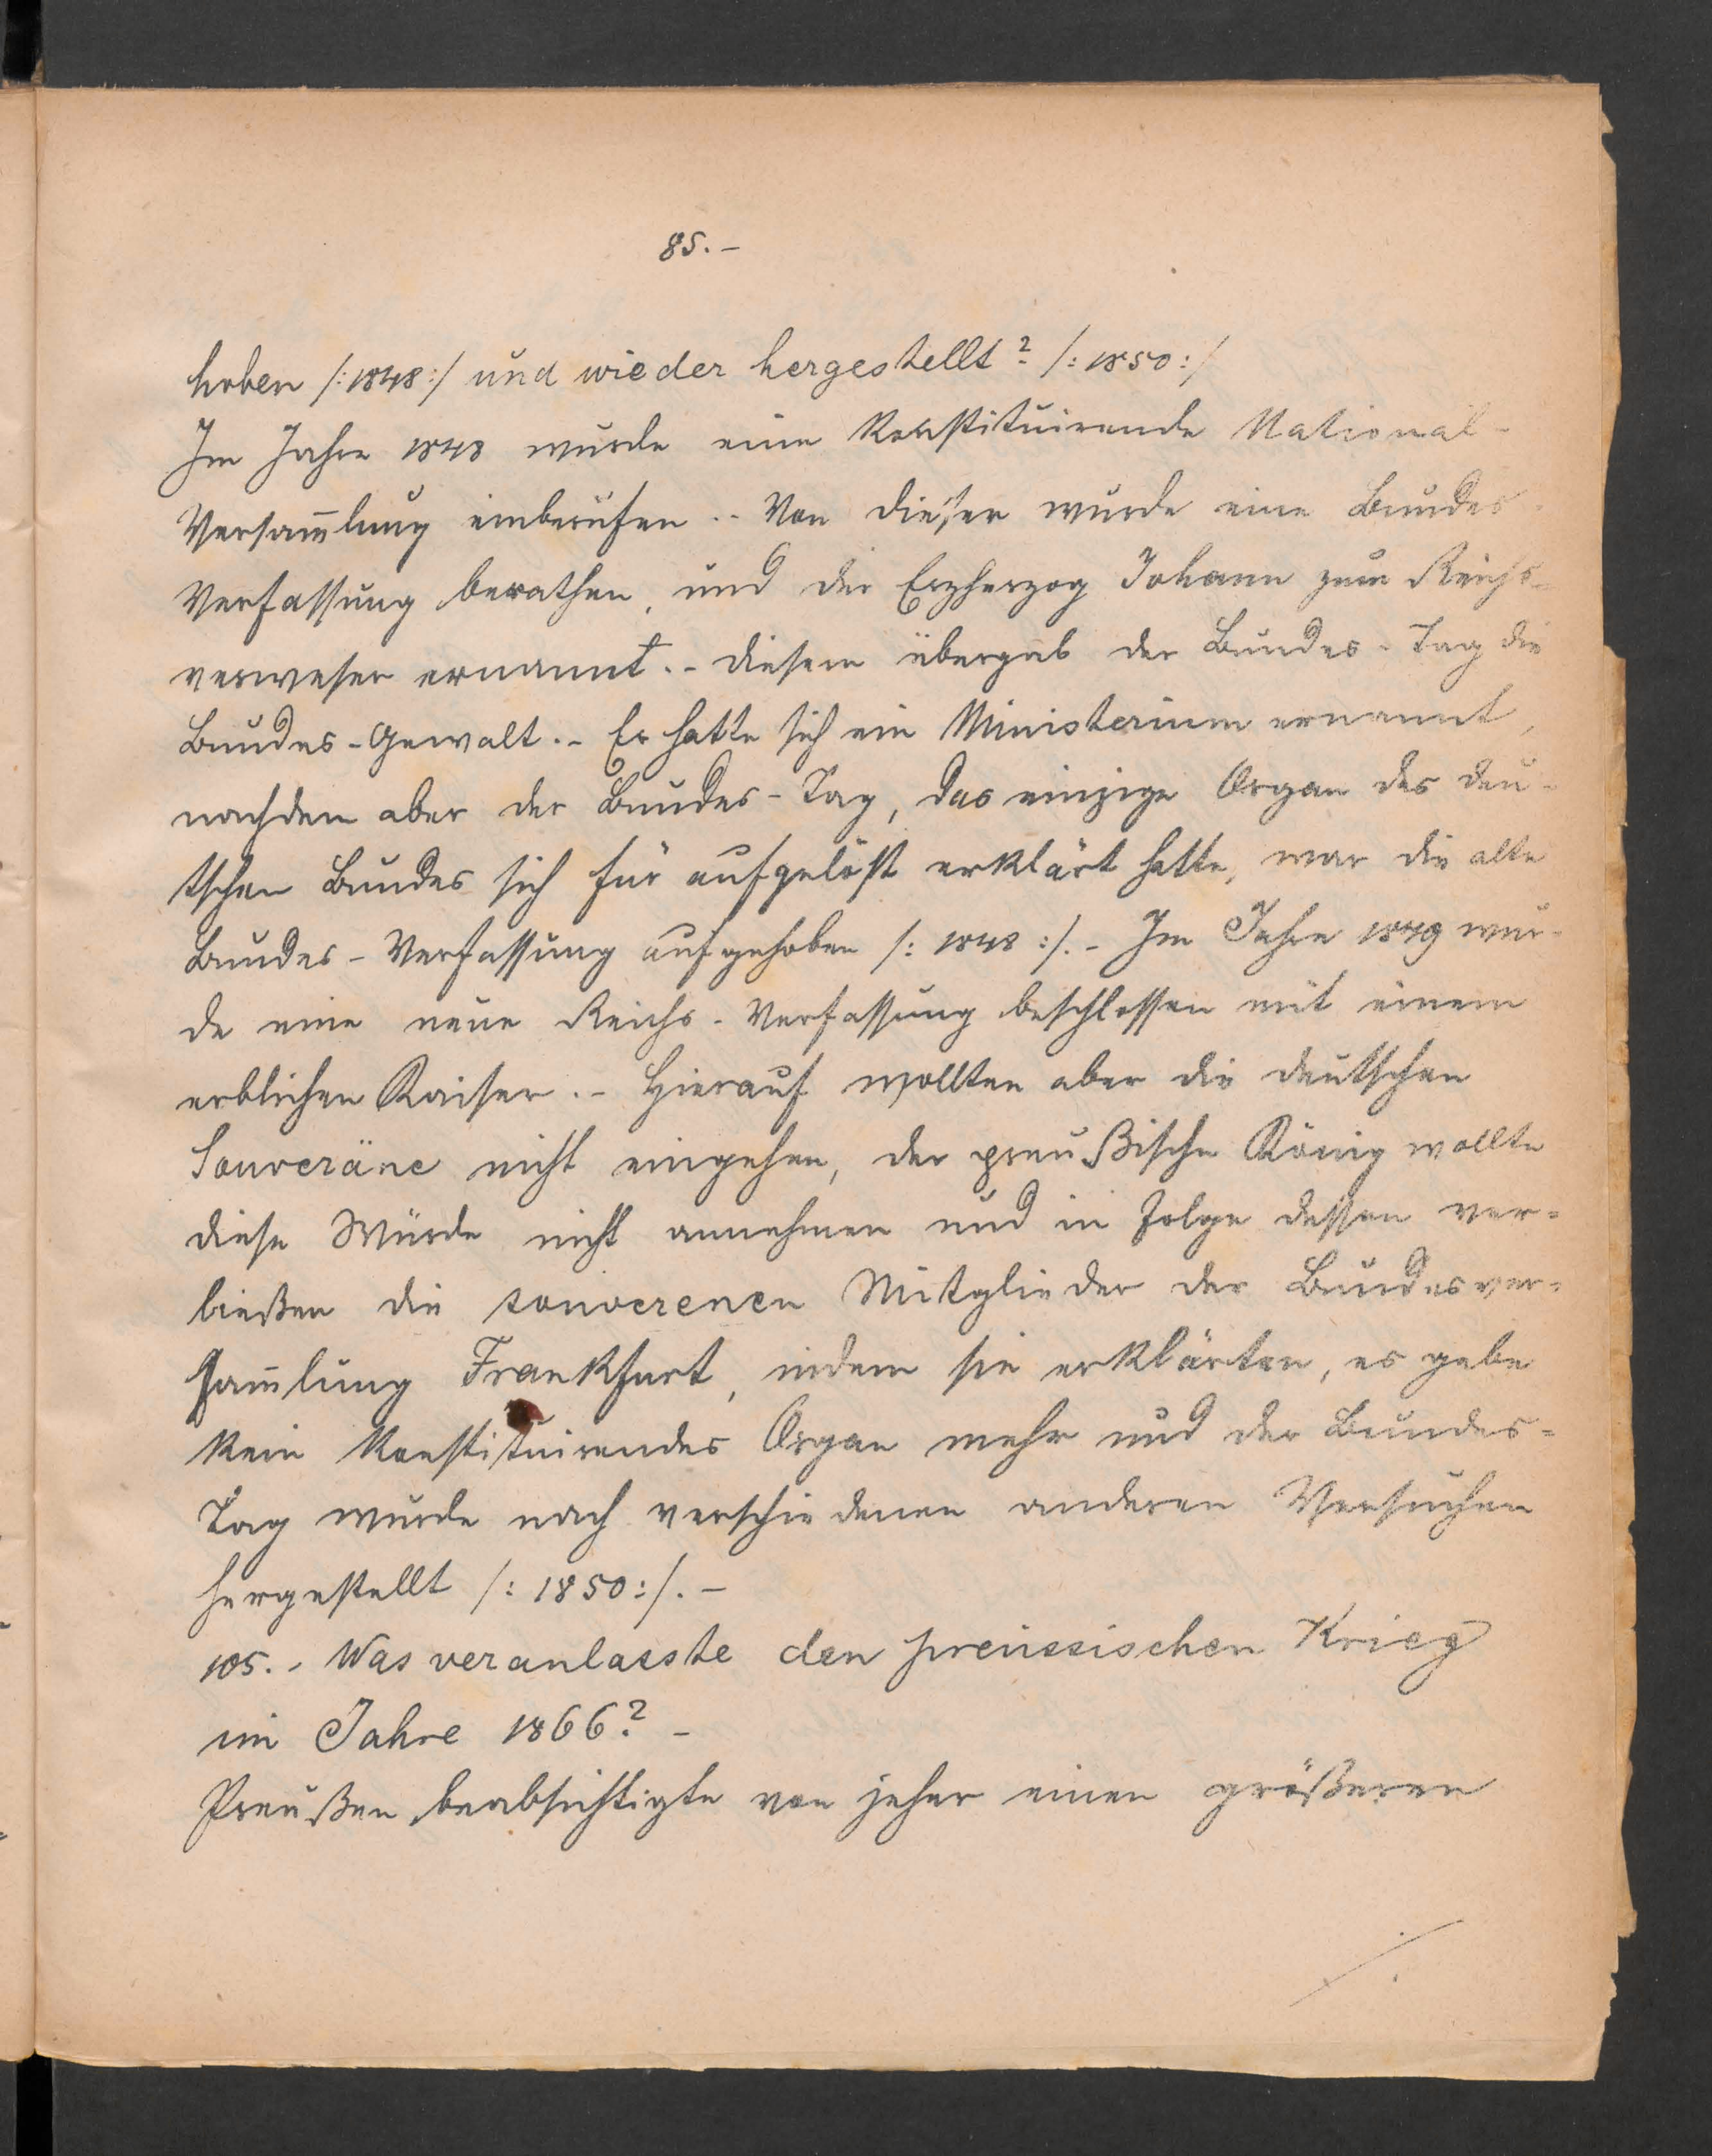 85.-
hoben /:1848:/ und wieder hergestellt? /:1850:/
Im Jahre 1848 wurde eine Konstituirende National-
Versam̄lung einberufen.- Von dieser wurde eine Bundes-
Verfassung berathen, und der Erzherzog Johann zum Reichs-
verweser ernannt.- Diesem übergab der Bundes-Tag die
Bundes-Gewalt.- Er hatte sich ein Ministerium ernannt,
nachdem aber der Bundes-Tag, das einzige Organ des deu-
tschen Bundes sich für aufgelöst erklärt hatte, war die alte
Bundes-Verfassung aufgehoben /: 1848 :/.- Im Jahre 1849 wur-
de eine neue Reichs-Verfassung beschlossen mit einem
erblichen Kaiser.- Hierauf wollten aber die deutschen
Souveräne nicht eingehen, der preußische König wollte
diese Würde nicht annehmen und in Folge dessen ver-
ließen die souverenen Mitglieder der Bundesver-
sam̄lung Frankfurt, indem sie erklärten, es gebe
kein Konstituirendes Organ mehr und der Bundes-
Tag wurde nach verschiedenen anderen Versuchen
hergestellt /: 1850:/.-
105.- Was veranlasste den preussischen Krieg
im Jahre 1866? -
Preußen beabsichtigte von jeher einen größeren
./.